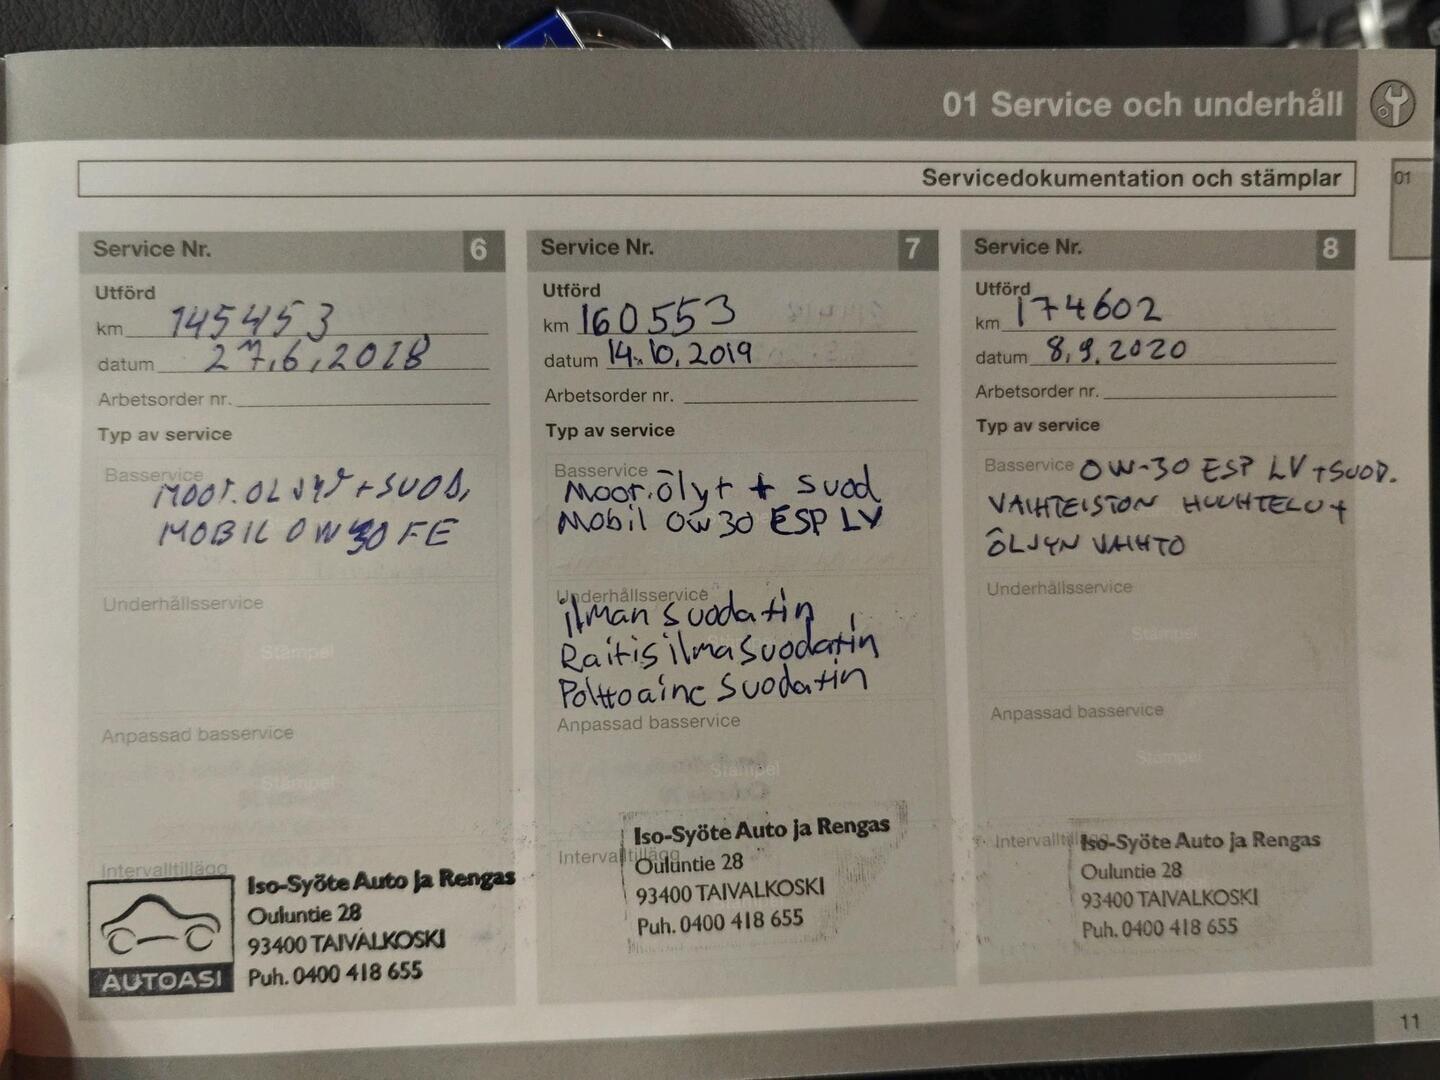 01 Service och underhåll
Servicedokumentation och stämplar
01
Service Nr. 6
Utförd
km 145453
datum 27.6.2018
Arbetsorder nr.
Typ av service
Basservice
MOOT.ÖLJYT + SUOD,
MOBIL 0W30 FE
Underhållsservice
Stämpel
Anpassad basservice
Stämpel
Intervalltillägg
AUTOASI
Iso-Syöte Auto ja Rengas
Ouluntie 28
93400 TAIVALKOSKI
Puh. 0400 418 655
Service Nr. 7
Utförd
km 160553
datum 14.10.2019
Arbetsorder nr.
Typ av service
Basservice
Moor.ölyt + suod
Mobil 0w30 ESP LV
Underhållsservice
ilman suodatin
Raitis ilma suodatin
Polttoaine suodatin
Anpassad basservice
Stämpel
Intervalltillägg
Iso-Syöte Auto ja Rengas
Ouluntie 28
93400 TAIVALKOSKI
Puh. 0400 418 655
Service Nr. 8
Utförd
km 174602
datum 8.9.2020
Arbetsorder nr.
Typ av service
Basservice 0W-30 ESP LV + SUOD.
VAIHTEISTON HUUHTELU +
ÖLJYN VAIHTO
Underhållsservice
Stämpel
Anpassad basservice
Stämpel
Iso-Syöte Auto ja Rengas
Ouluntie 28
93400 TAIVALKOSKI
Puh. 0400 418 655
11